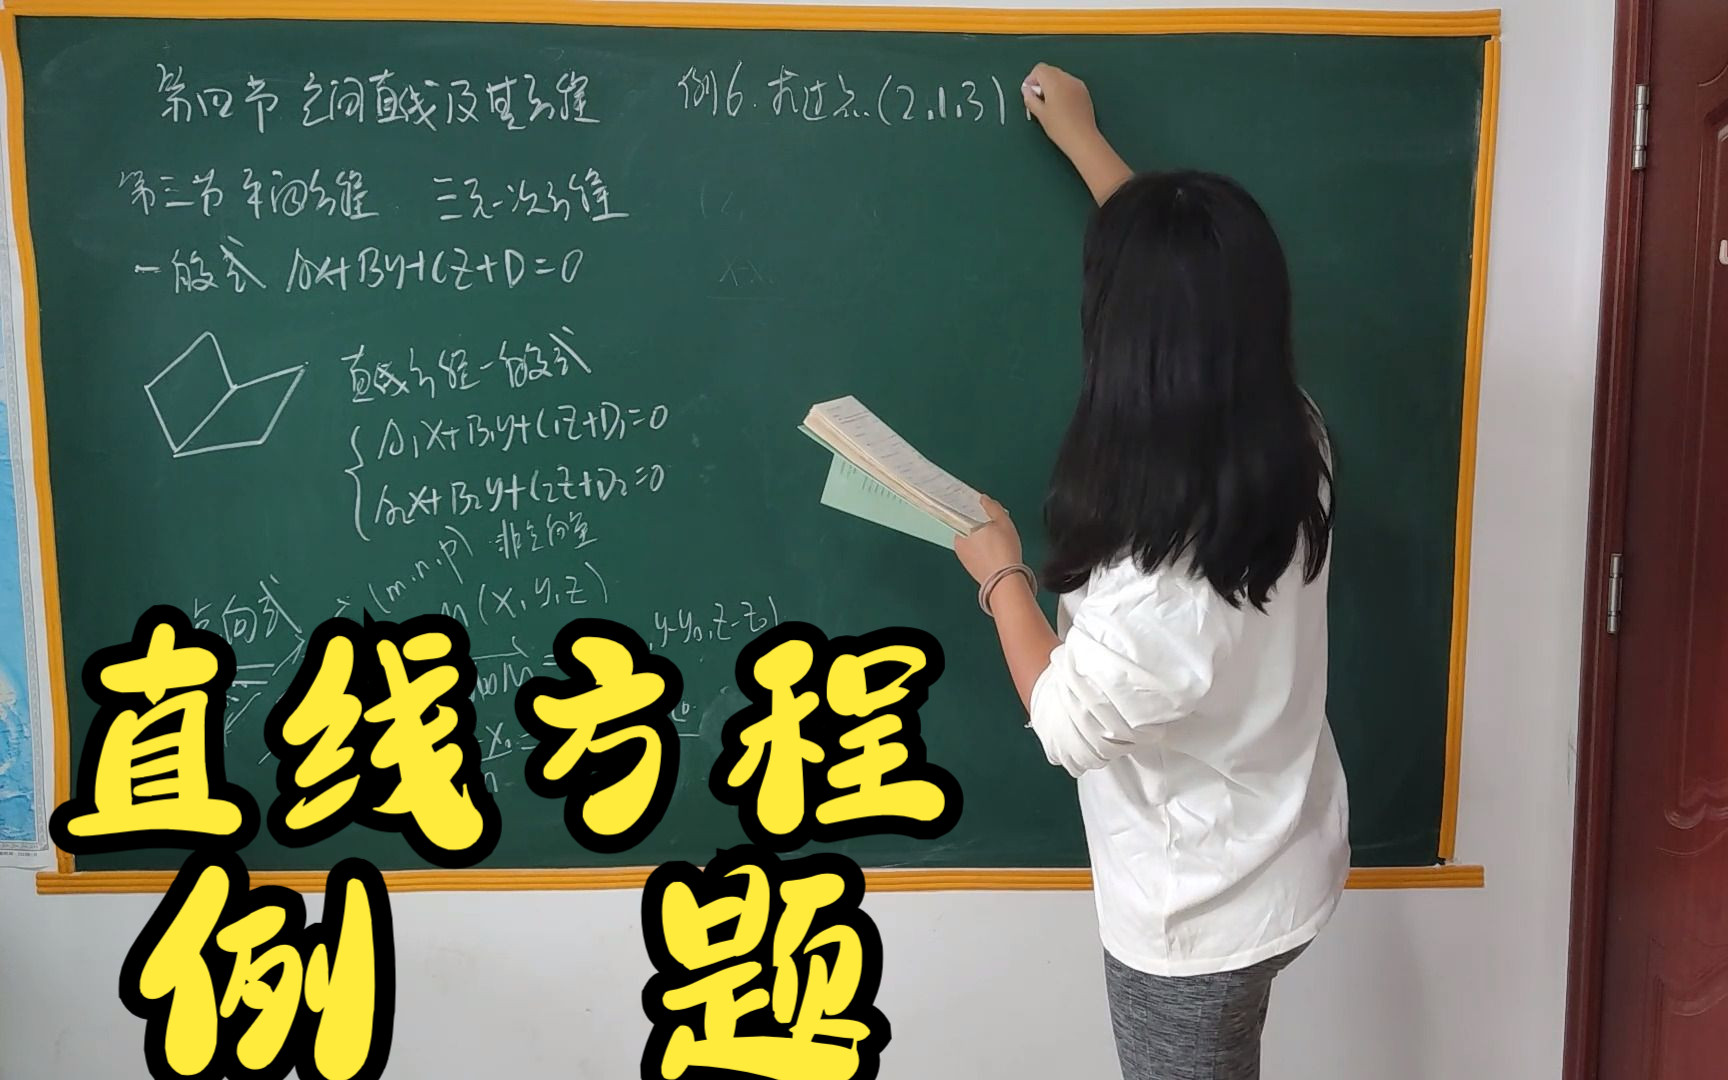 第四节 空间直线及其方程
第三节 平面方程 三元一次方程
一般式 Ax+By+Cz+D=0
直线方程一般式
A₁x+B₁y+C₁z+D₁=0
A₂x+B₂y+C₂z+D₂=0
(m,n,p) 非零向量
点向式
M(x,y,z)
,y-y₀,z-z₀)
例6.求过点(2,1,3)
直线方程
例 题